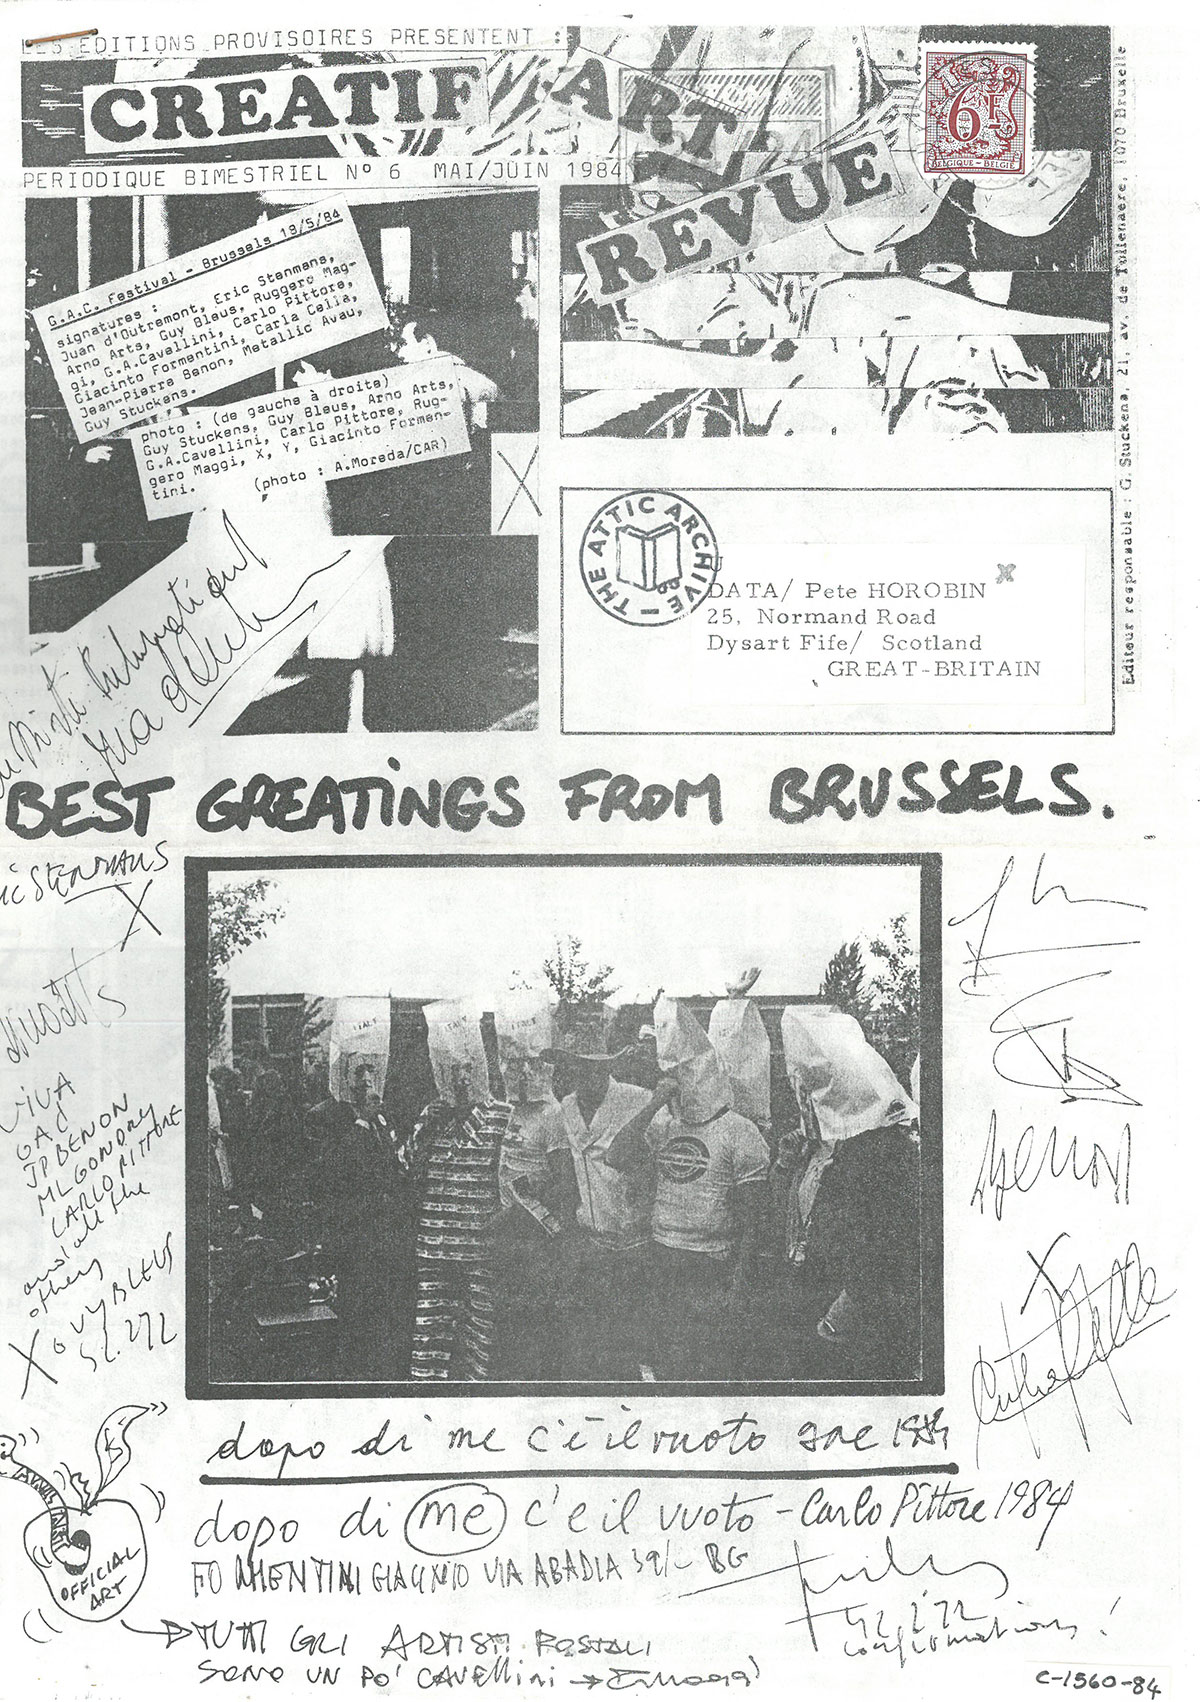 LES EDITIONS PROVISOIRES PRESENTENT :
CREATIF ART
REVUE
6F
BELGIQUE - BELGIË
PERIODIQUE BIMESTRIEL Nº 6 MAI/JUIN 1984
G.A.C. Festival - Brussels 19/5/84
signatures :
Juan d'Outremont, Eric Stenmans,
Arno Arts, Guy Bleus, Ruggero Mag-
gi, G.A.Cavellini, Carlo Pittore,
Giacinto Formentini, Carla Cella,
Jean-Pierre Benon, Metallic Avau,
Guy Stuckens.
photo : (de gauche à droite)
Guy Stuckens, Guy Bleus, Arno Arts,
G.A.Cavellini, Carlo Pittore, Rug-
gero Maggi, X, Y, Giacinto Formen-
tini.
(photo : A.Moreda/CAR)
X
Editeur responsable : G. Stuckens, 21, av. de Tollenaere, 1070 Bruxelle
THE ATTIC ARCHIVE
DATA/ Pete HOROBIN
25, Normand Road
Dysart Fife/ Scotland
GREAT-BRITAIN
BEST GREATINGS FROM BRUSSELS.
STENMANS
X
VIVA
GAC
JP BENON
ML GONDRY
CARLO PITTORE
and all the
others
X GUY BLEUS
52.272
ITALY
ITALY
ITALY
Benon
X
dopo di me c'è il vuoto gac 1984
dopo di me c'e il vuoto - Carlo Pittore 1984
FORMENTINI GIACINTO VIA ABADIA 39/ BG
OFFICIAL
ART
TUTTI GLI ARTISTI POSTALI
SONO UN PO' CAVELLINI
42.272
confirmations!
C-1560-84